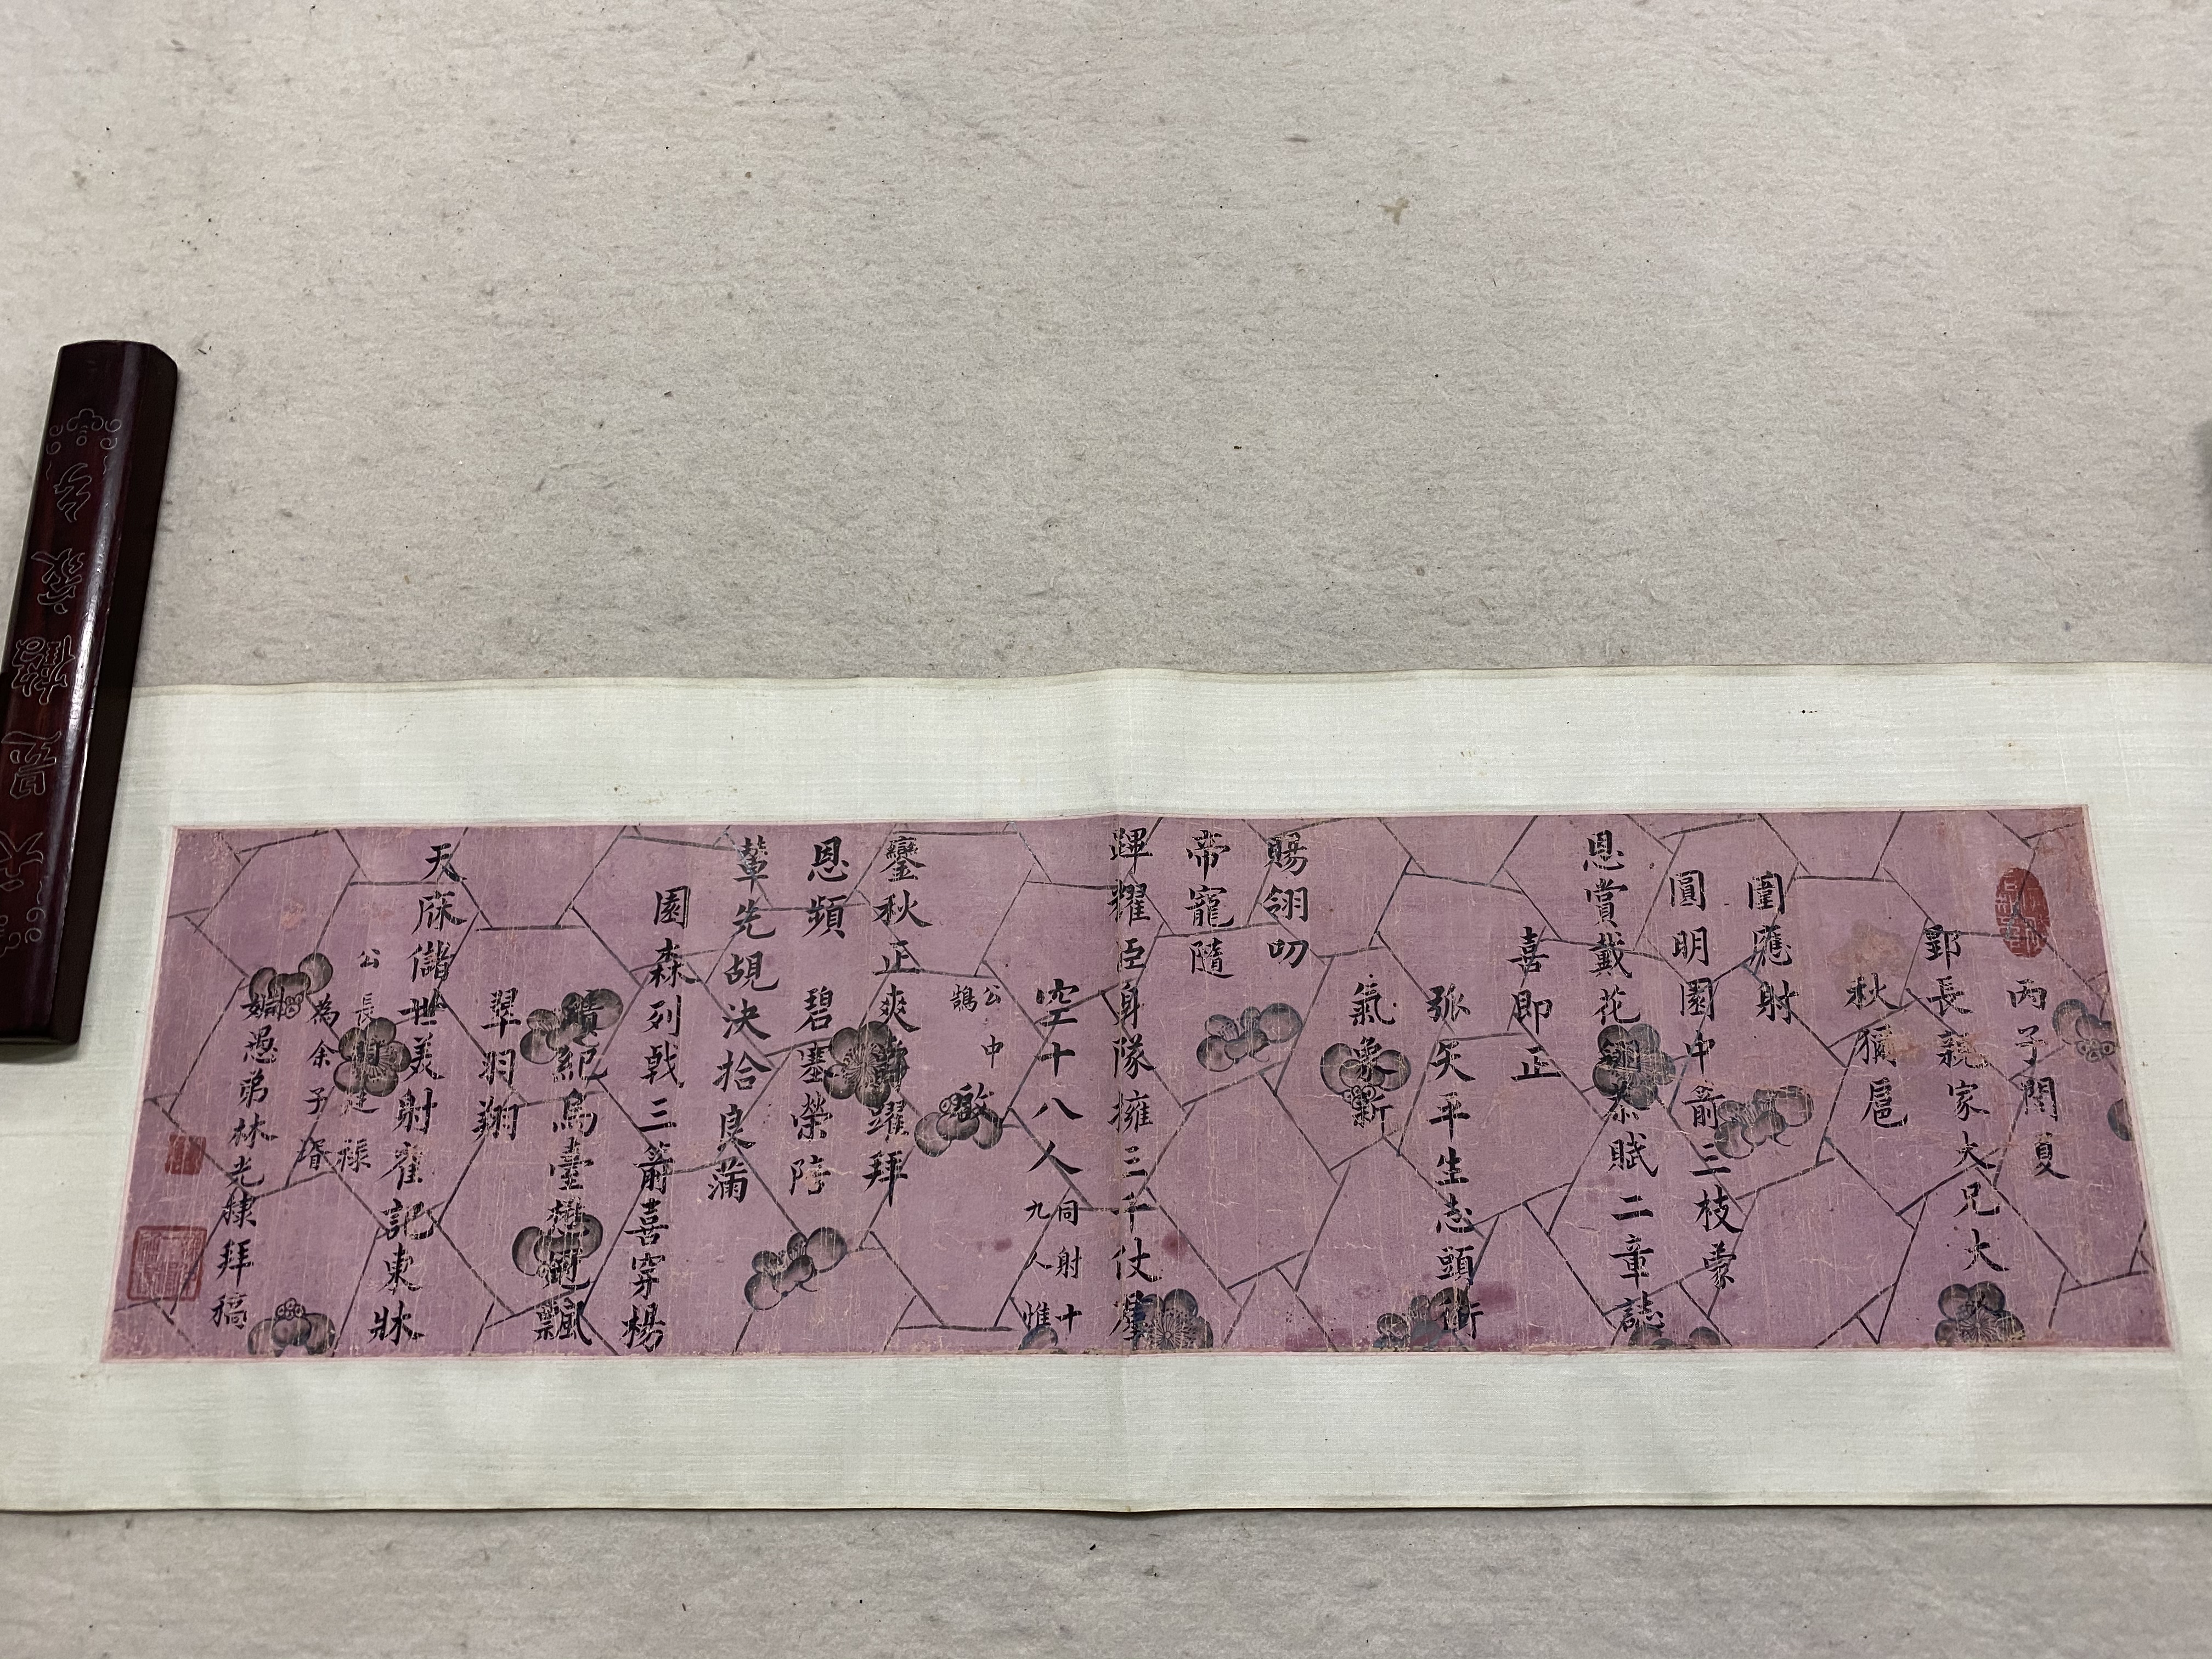 丙子閏夏
鄭長親家大兄大
秋獮扈
圍應射
圓明園中箭三枝蒙
恩賞戴花翎恭賦二章誌
喜即正
弧矢平生志頭銜
氣象新
賜翎叨
帝寵隨
蹕耀臣身隊擁三千仗羣
空十八人
同射十
九人惟
公中
鵠
鑾秋正爽 躍拜
恩頻 碧塞榮陪
輦先 決拾良 蒲
園森列戟三箭喜穿楊
績紀烏臺 冠飄
翠羽翔
天庥儲世美射 記東牀
公長 廷祿
為余子壻
姻愚弟林光棣拜稿